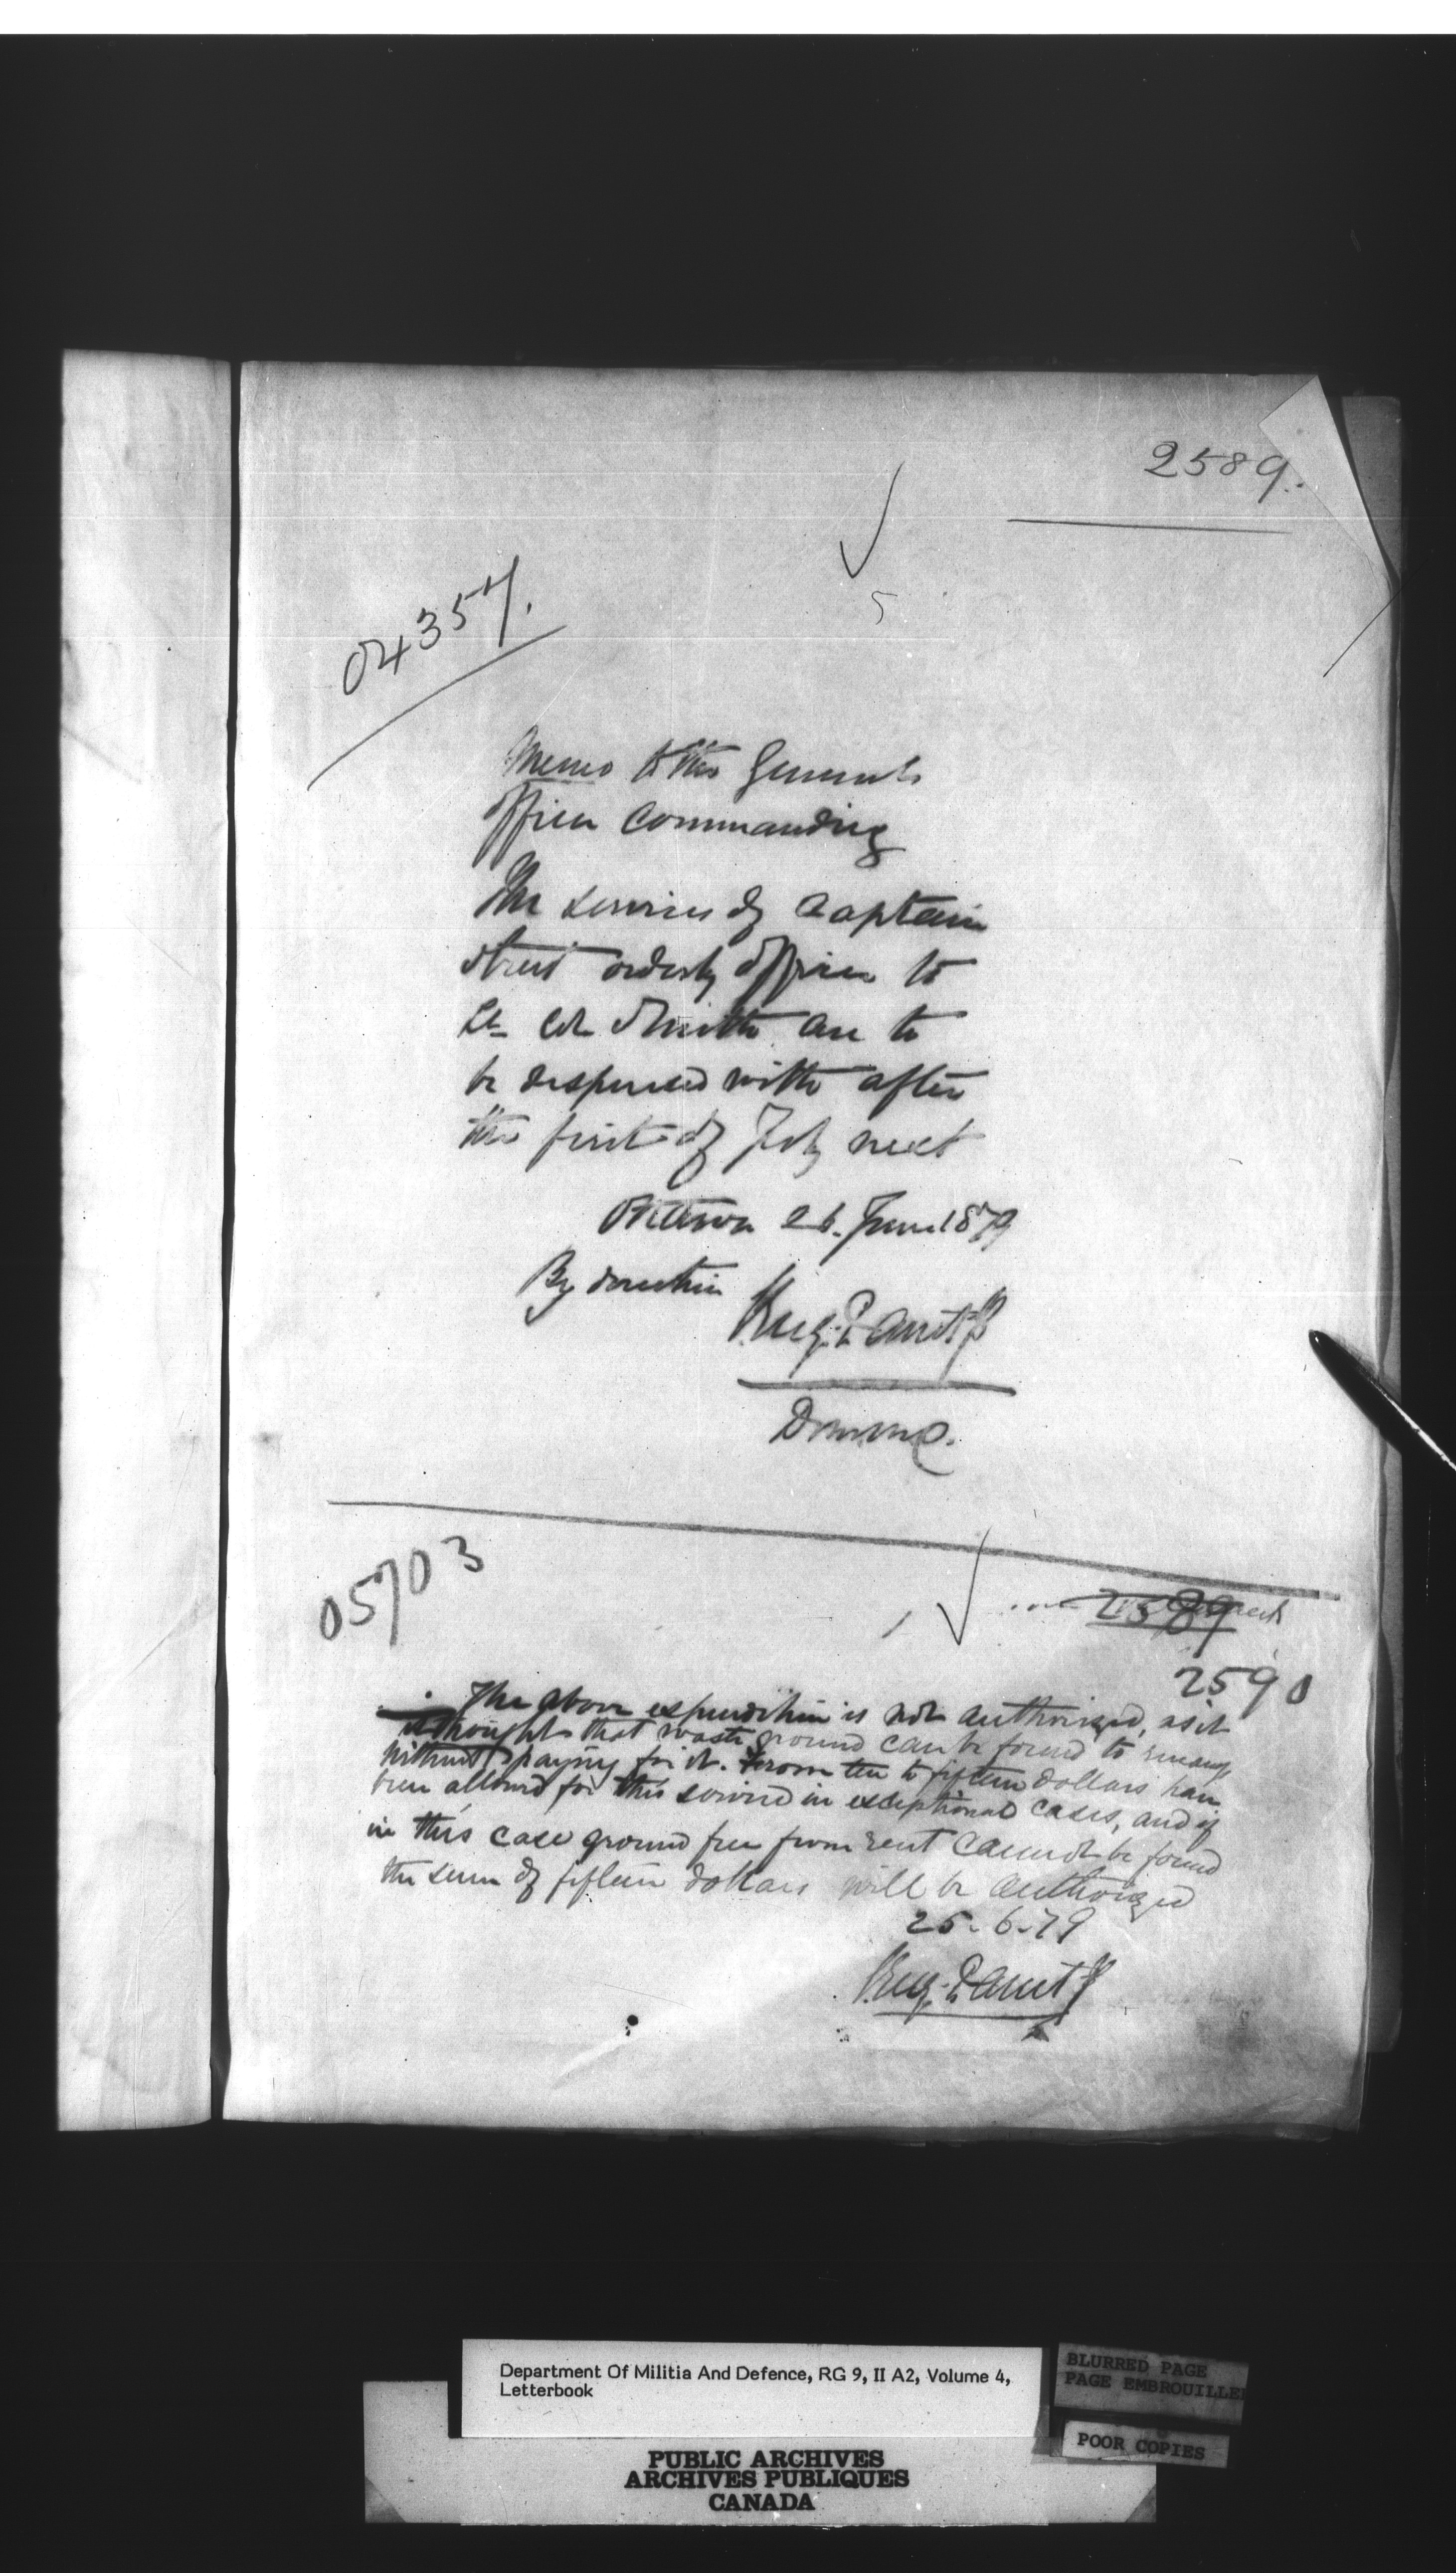 2589.
04357.
Memo to the General
Officer Commanding
The services of Captain
Street orderly officer to
Lt Col Smith are to
be dispensed with after
the first of July next
Ottawa 26. June 1879
By direction
Eug. Panet
DMMD.
05703
2589
2590
The above expenditure is not authorized, as it
is thought that waste ground can be found to
without paying for it. From ten to fifteen dollars have
been allowed for this service in exceptional cases, and if
in this case ground free from rent cannot be found
the sum of fifteen dollars will be authorized
25-6-79
Eug. Panet
Department Of Militia And Defence, RG 9, II A2, Volume 4,
Letterbook
BLURRED PAGE
PAGE EMBROUILLEE
POOR COPIES
PUBLIC ARCHIVES
ARCHIVES PUBLIQUES
CANADA